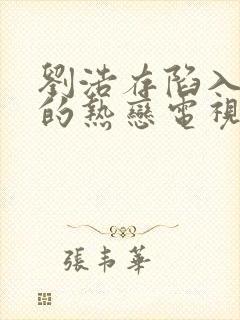 劉浩存陷入
的熱戀電視
張韋華